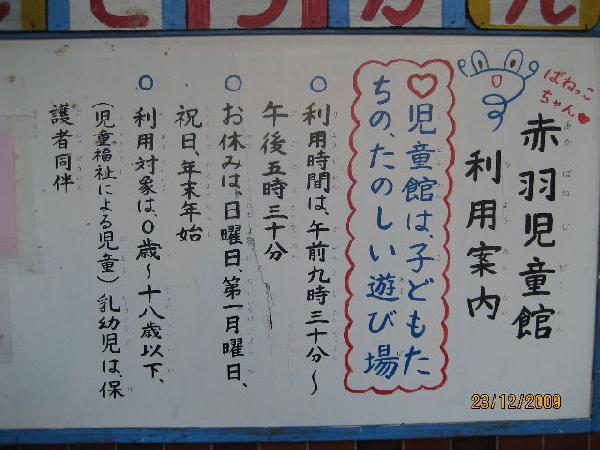 じどうかん
ぱねっこ
ちゃん
赤羽児童館
利用案内
♡児童館は、子どもた
ちの、たのしい遊び場
○利用時間は、午前九時三十分～
午後五時三十分
○お休みは、日曜日、第一月曜日、
祝日、年末年始
○利用対象は、0歳～十八歳以下、
(児童福祉による児童)乳幼児は、保
護者同伴
23/12/2009